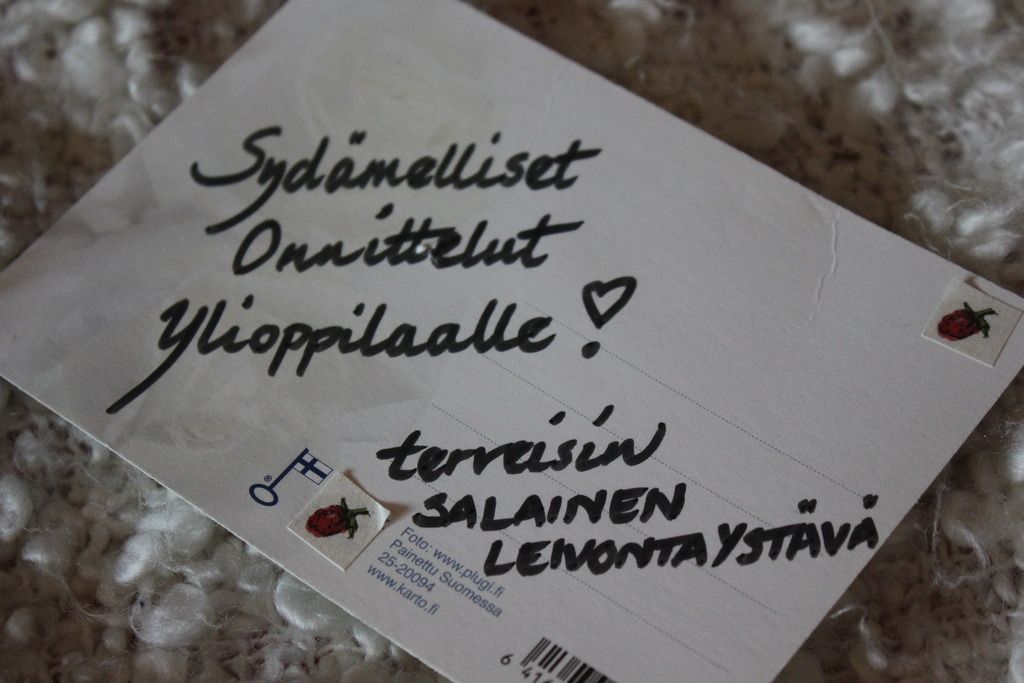 Sydämelliset
Onnittelut
Ylioppilaalle!
terveisin
SALAINEN
LEIVONTAYSTÄVÄ
Foto: www.plugi.fi
Painettu Suomessa
25-20094
www.karto.fi
6 416